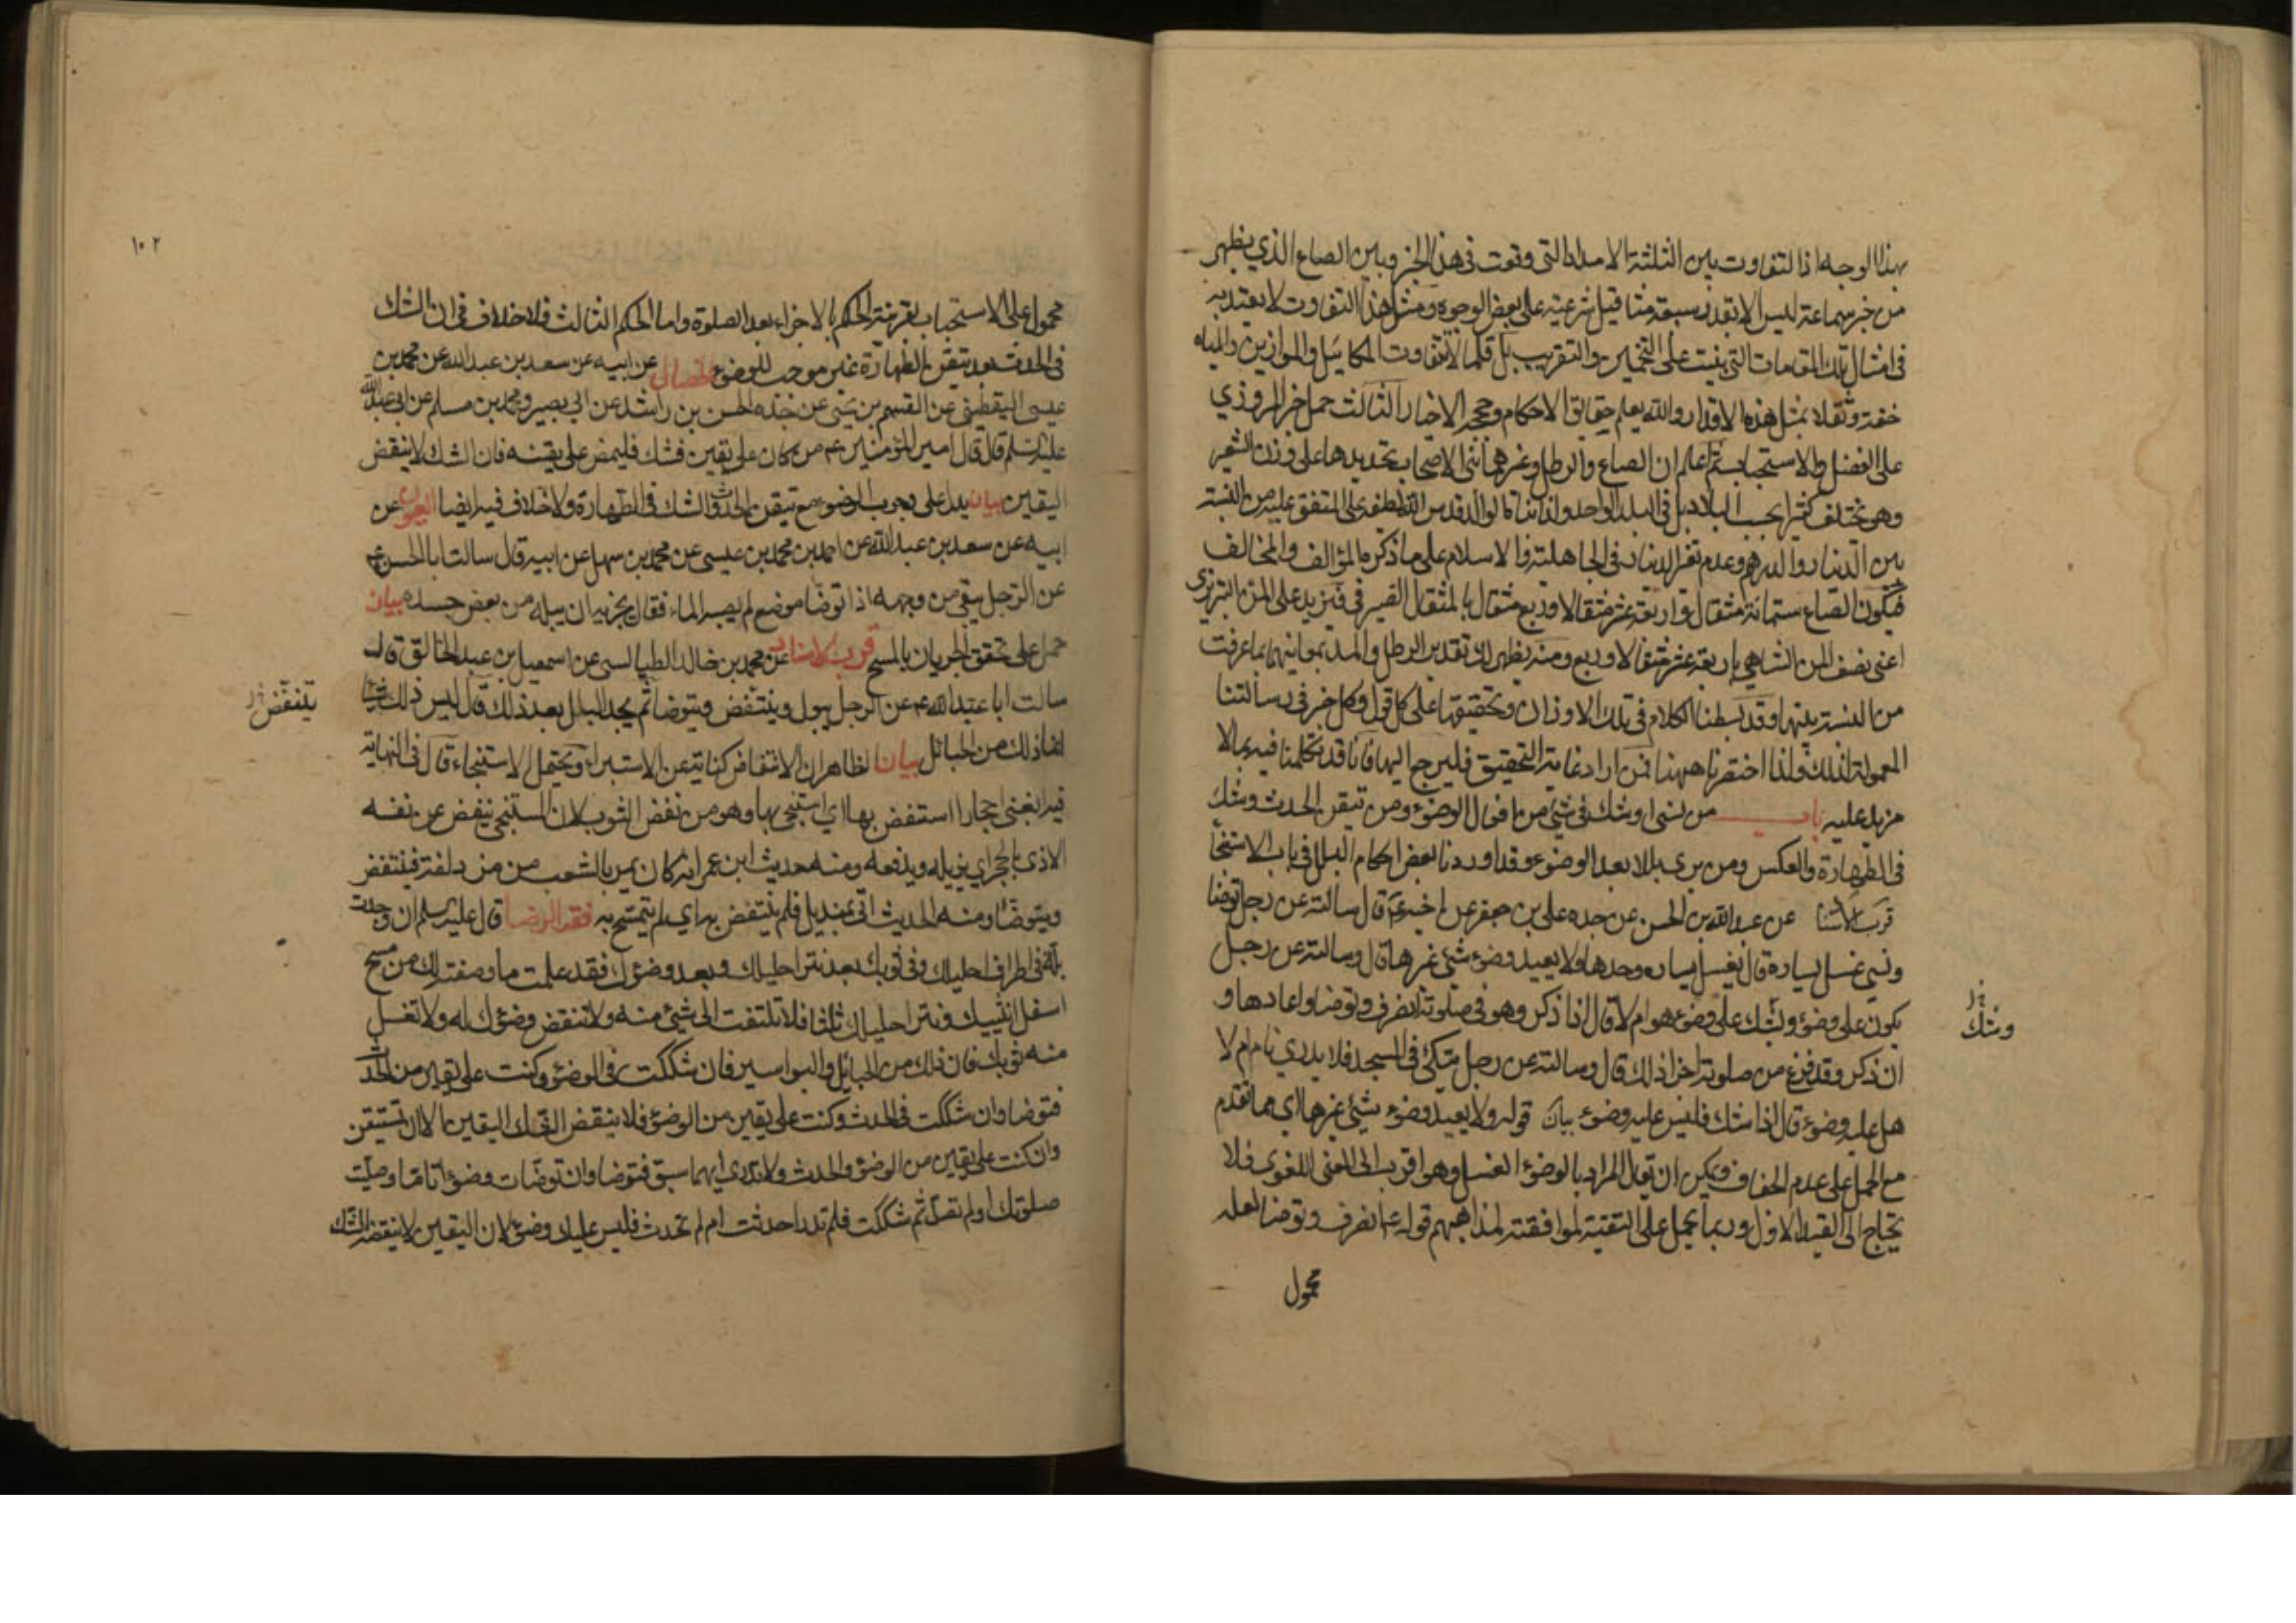 بهذا الوجه اذ التفاوت بين الثلثة الامداد التى وقعت فى هذا الخبر وبين الصاع الذي يظهر
من خبر سماعة ليس الا بقدر سبعة مثاقيل شرعية على بعض الوجوه ومثل هذا التفاوت لا يعتد به
فى امثال تلك المقامات التى بنيت على التخمير والتقريب بل قلما لا تتفاوت المكائيل والموازين والمياه
خفة وثقلا بمثل هذه الاقدار والله يعلم حقايق الاحكام وحججه الاخيار الثالث حمل خبر المروزي
على الفضل والاستحباب ثم اعلم ان الصاع والرطل وغيرهما بنى الاصحاب تحديدها على وزن الشعير
وهو يختلف كثيرا بحسب البلاد بل فى البلد الواحد ولذا بنا الوالد قدس الله لطفه على المتفق عليه من النسبة
بين الدينار والدرهم وعدم تغير الدينار فى الجاهلية والاسلام على ما ذكره المؤالف والمخالف
فيكون الصاع ستمائة مثقال واربعة عشر مثقالا وربع مثقال بالمثقال الصيرفى فيزيد على المن التبريزى
اعنى نصف المن الشاهى باربعة عشر مثقالا وربع ومنه يظهر لك تقدير الرطل والمد بمعانيهما بما عرفت
من النسبة بينهما وقد بسطنا الكلام فى تلك الاوزان وتحقيقها على كل قول وكل خبر فى رسالتنا
المعمولة لذلك ولذا اختصرنا ههنا فمن اراد غاية التحقيق فليرجع اليها فانا قد تكلمنا فيه بما لا
مزيد عليه باب من نسى او شك فى شئ من افعال الوضوء ومن تيقن الحدث وشك
فى الطهارة والعكس ومن يرى بللا بعد الوضوء وقد اوردنا بعض احكام البلل فى باب الاستنجا
قرب الاسنا عن عبد الله بن الحسن عن جده على بن جعفر عن اخيه ع قال سالته عن رجل توضا
ونسي غسل يساره قال يغسل يساره وحدها ولا يعيد وضوء شئ غيرها قال وسالته عن رجل
يكون على وضوء ويشك على وضوء هو ام لا قال اذا ذكر وهو فى صلوته انصرف وتوضا واعادها و
وشك
ان ذكر وقد فرغ من صلوته اجزاه ذلك قال وسالته عن رجل متكئ فى المسجد فلا يدري نام ام لا
هل عليه وضوء قال اذا شك فليس عليه وضوء بيان قوله ولا يعيد وضوء شئ غيرها اي مما تقدم
مع الحمل على عدم الجفاف ويمكن ان يقال المراد بالوضوء الغسل وهو اقرب الى المعنى اللغوى فلا
يحتاج الى القيد الاول وربما يحمل على التقية لموافقته لمذاهبهم قوله ع انصرف وتوضا لعله
محمول
١٠٢
محمول على الاستحباب بقرينة الحكم بالاجزاء بعد الصلوة واما الحكم الثالث فلا خلاف فى ان الشك
فى الحدث بعد تيقن الطهارة غير موجب للوضوء الخصال عن ابيه عن سعد بن عبد الله عن محمد بن
عيسى اليقطينى عن القسم بن يحيى عن جده الحسن بن راشد عن ابى بصير ومحمد بن مسلم عن ابى عبد الله
عليه السلم قال قال امير المؤمنين ع من كان على يقين فشك فليمض على يقينه فان الشك لا ينقض
اليقين بيان يدل على وجوب الوضوء مع تيقن الحدث والشك فى الطهارة ولا خلاف فيه ايضا العيون عن
ابيه عن سعد بن عبد الله عن احمد بن محمد بن عيسى عن محمد بن سهل عن ابيه قال سالت ابا الحسن ع
عن الرجل يبقى من وجهه اذا توضا موضع لم يصبه الماء فقال يجزيه ان يبله من بعض جسده بيان
حمل على تحقق الجريان بالمسح قرب الاسناد عن محمد بن خالد الطيالسى عن اسمعيل بن عبد الخالق قال
سالت ابا عبد الله ع عن الرجل يبول وينتفض ويتوضا ثم يجد البلل بعد ذلك قال ليس ذلك شيئا
انما ذلك من الحبائل بيان الظاهر ان الانتفاض كناية عن الاستبراء ويحتمل الاستنجاء قال فى النهاية
فيه ابغنى احجارا استنفض بها اي استنجى بها وهو من نفض الثوب لان المستنجى ينفض عن نفسه
الاذى بالحجر اي يزيله ويدفعه ومنه حديث ابن عمر انه كان يمر بالشعب من مزدلفة فينتفض
ويتوضا ومنه الحديث اتى بمنديل فلم ينتفض به اي لم يتمسح به فقه الرضا قال عليه السلم ان وجدت
بلة فى اطراف احليلك وفى ثوبك بعد نتر احليلك وبعد وضوئك فقد علمت ما وصفته لك من مسح
اسفل انثييك ونتر احليلك ثلثا فلا تلتفت الى شئ منه ولا تنقض وضوئك له ولا تغسل
منه ثوبك فان ذلك من الحبائل والبواسير فان شككت فى الوضوء وكنت على يقين من الحدث
فتوضا وان شككت فى الحدث وكنت على يقين من الوضوء فلا ينقض الشك اليقين الا ان تستيقن
وان كنت على يقين من الوضوء والحدث ولا تدري ايهما سبق فتوضا وان توضات وضوءا تاما وصليت
صلوتك او لم تصل ثم شككت فلم تدر احدثت ام لم تحدث فليس عليك وضوء لان اليقين لا ينقضه الشك